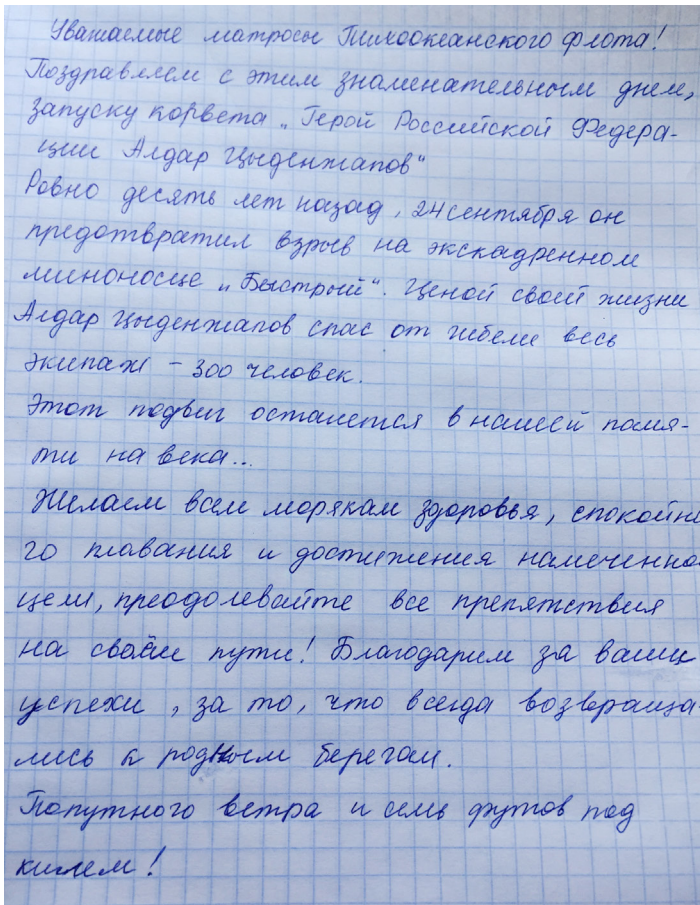 Уважаемые матросы Тихоокеанского флота!
Поздравляем с этим знаменательным днем,
запуску корвета „Герой Российской Федера-
ции Алдар Цыденжапов"
Ровно десять лет назад, 24 сентября он
предотвратил взрыв на экскадренном
миноносце „Быстрый". Ценой своей жизни
Алдар Цыденжапов спас от гибели весь
экипаж – 300 человек.
Этот подвиг останется в нашей памя-
ти на века...
Желаем всем морякам здоровья, спокойно
го плавания и достижения намеченно
цели, преодолевайте все препятствия
на своём пути! Благодарим за ваши
успехи, за то, что всегда возвраща
лись к родным берегам.
Попутного ветра и семь футов под
килем!